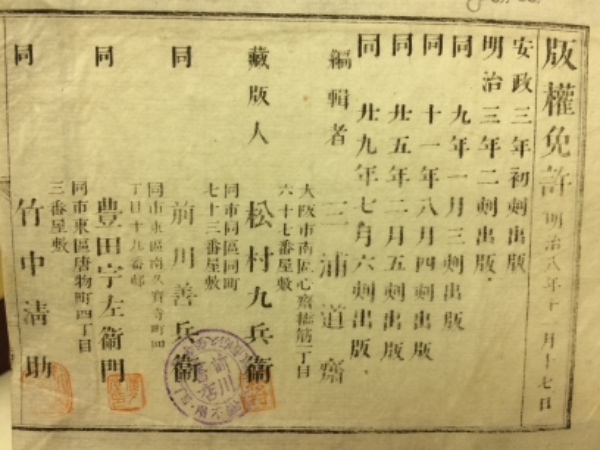 版權免許 明治八年十月十七日
安政三年初刻出版
明治三年二刻出版
同九年一月三刻出版
同十一年八月四刻出版
同廿五年二月五刻出版
同廿九年七月六刻出版
編輯者 三浦道齋
大阪市南區心齋橋筋一丁目
六十七番屋敷
藏版人 松村九兵衞
同市同區同町
七十三番屋敷
同 前川善兵衞
同市東區南久寶寺町四
丁目十九番邸
同 豊田宇左衞門
同市東區唐物町四丁目
三番屋敷
同 竹中清助